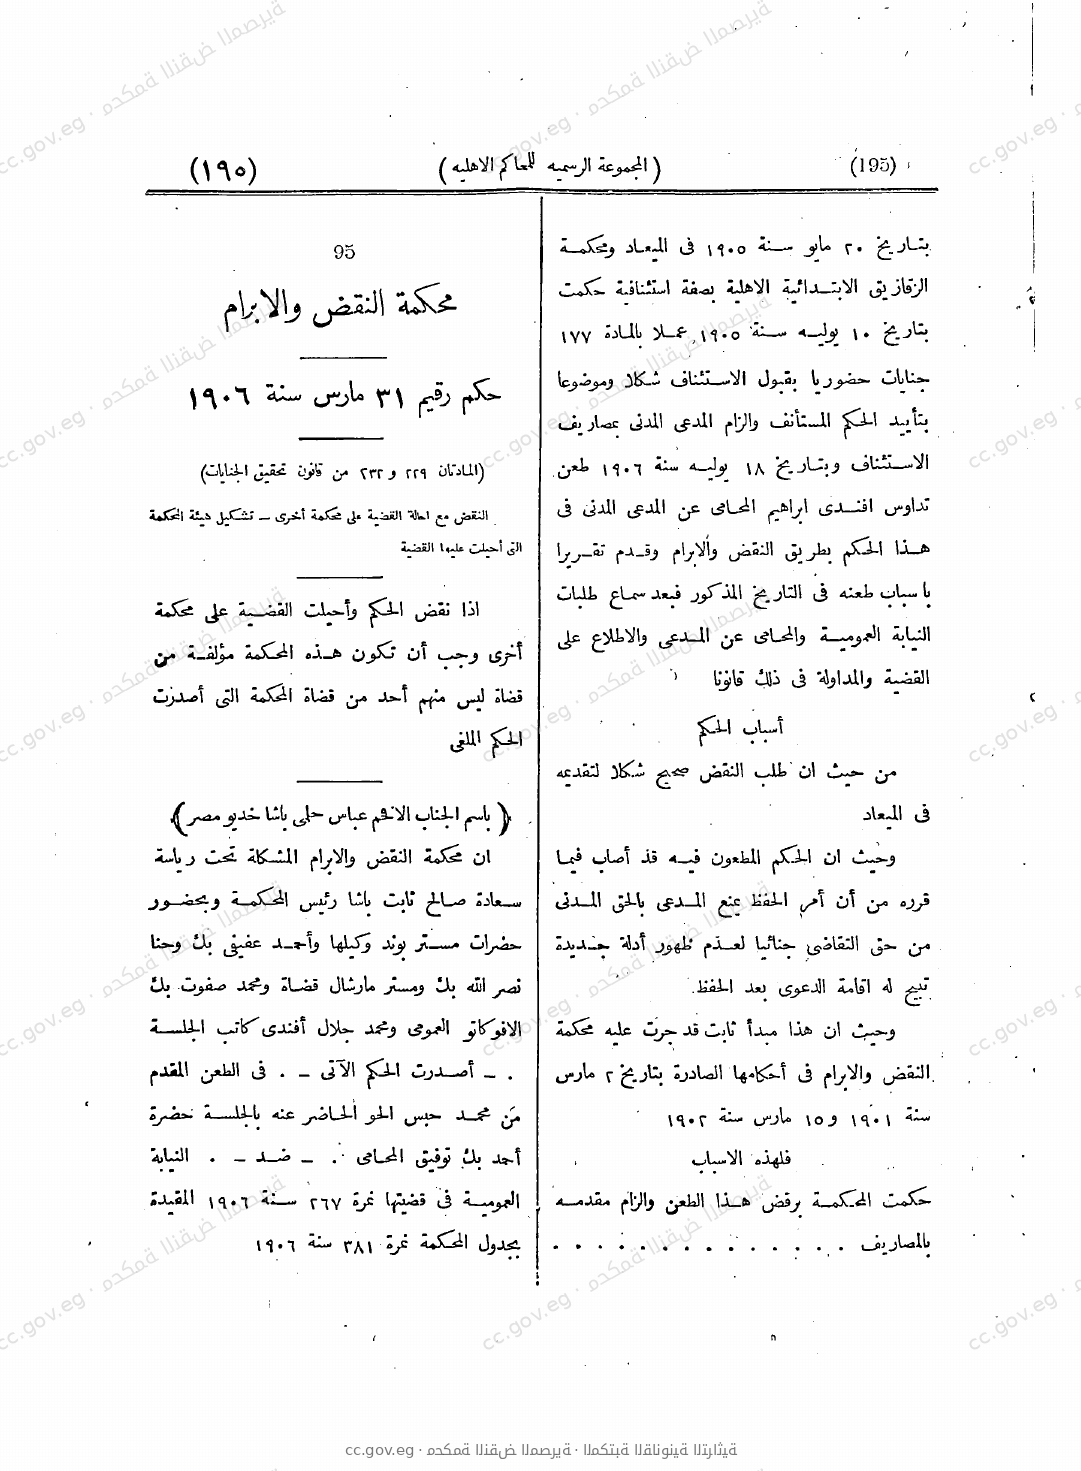 (195)
(المجموعة الرسمية للمحاكم الاهلية)
(١٩٥)
بتاريخ ٢٠ مايو سنة ١٩٠٥ فى الميعاد ومحكمة
الزقازيق الابتدائية الاهلية بصفة استئنافية حكمت
بتاريخ ١٠ يوليه سنة ١٩٠٥ عملا بالمادة ١٧٧
جنايات حضوريا بقبول الاستئناف شكلا وموضوعا
بتأييد الحكم المستأنف والزام المدعى المدنى بمصاريف
الاستئناف وبتاريخ ١٨ يوليه سنة ١٩٠٦ طعن
تداوس افندى ابراهيم المحامى عن المدعى المدنى فى
هذا الحكم بطريق النقض والابرام وقدم تقريرا
باسباب طعنه فى التاريخ المذكور فبعد سماع طلبات
النيابة العمومية والمحامى عن المدعى والاطلاع على
القضية والمداولة فى ذلك قانونا
أسباب الحكم
من حيث ان طلب النقض صحيح شكلا لتقديمه
فى الميعاد
وحيث ان الحكم المطعون فيه قد أصاب فيما
قرره من أن أمر الحفظ يمنع المدعى بالحق المدنى
من حق التقاضى جنائيا لعدم ظهور أدلة جديدة
تبيح له اقامة الدعوى بعد الحفظ.
وحيث ان هذا مبدأ ثابت قد جرت عليه محكمة
النقض والابرام فى أحكامها الصادرة بتاريخ ٢ مارس
سنة ١٩٠١ و١٥ مارس سنة ١٩٠٢
فلهذه الاسباب
حكمت المحكمة برفض هذا الطعن والزام مقدمه
بالمصاريف . . . . . . . . . . . . . .
95
محكمة النقض والابرام
حكم رقيم ٣١ مارس سنة ١٩٠٦
(المادتان ٢٢٩ و ٢٣٢ من قانون تحقيق الجنايات)
النقض مع احالة القضية على محكمة أخرى – تشكيل هيئة المحكمة
التى أحيلت عليها القضية
اذا نقض الحكم وأحيلت القضية على محكمة
أخرى وجب أن تكون هذه المحكمة مؤلفة من
قضاة ليس منهم أحد من قضاة المحكمة التى أصدرت
الحكم الملغى
(باسم الجناب الافخم عباس حلمى باشا خديو مصر)
ان محكمة النقض والابرام المشكلة تحت رياسة
سعادة صالح ثابت باشا رئيس المحكمة وبحضور
حضرات مستر بوند وكيلها وأحمد عفيفى بك وحنا
نصر الله بك ومستر مارشال قضاة ومحمد صفوت بك
الافوكاتو العمومى ومحمد جلال أفندى كاتب الجلسة
. – أصدرت الحكم الآتى – . فى الطعن المقدم
من محمد حبس الحو الحاضر عنه بالجلسة حضرة
أحمد بك توفيق المحامى . – ضد – . النيابة
العمومية فى قضيتها نمرة ٢٦٧ سنة ١٩٠٦ المقيدة
بجدول المحكمة نمرة ٣٨١ سنة ١٩٠٦
cc.gov.eg · محكمة النقض المصرية · المكتبة القانونية التراثية